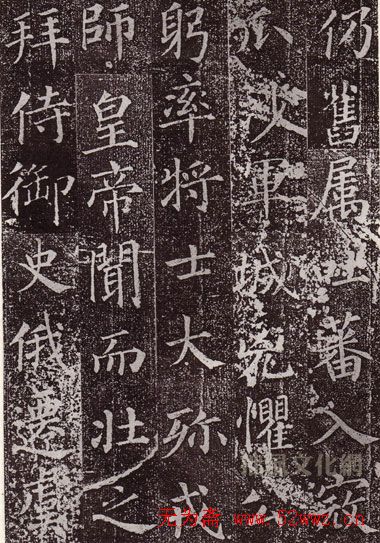 仍舊属吐蕃入寇
瓜沙軍城兇懼公
躬率將士大殄戎
師皇帝聞而壯之
拜侍御史俄遷虞
文化網
无为斋 www.52wwz.cn